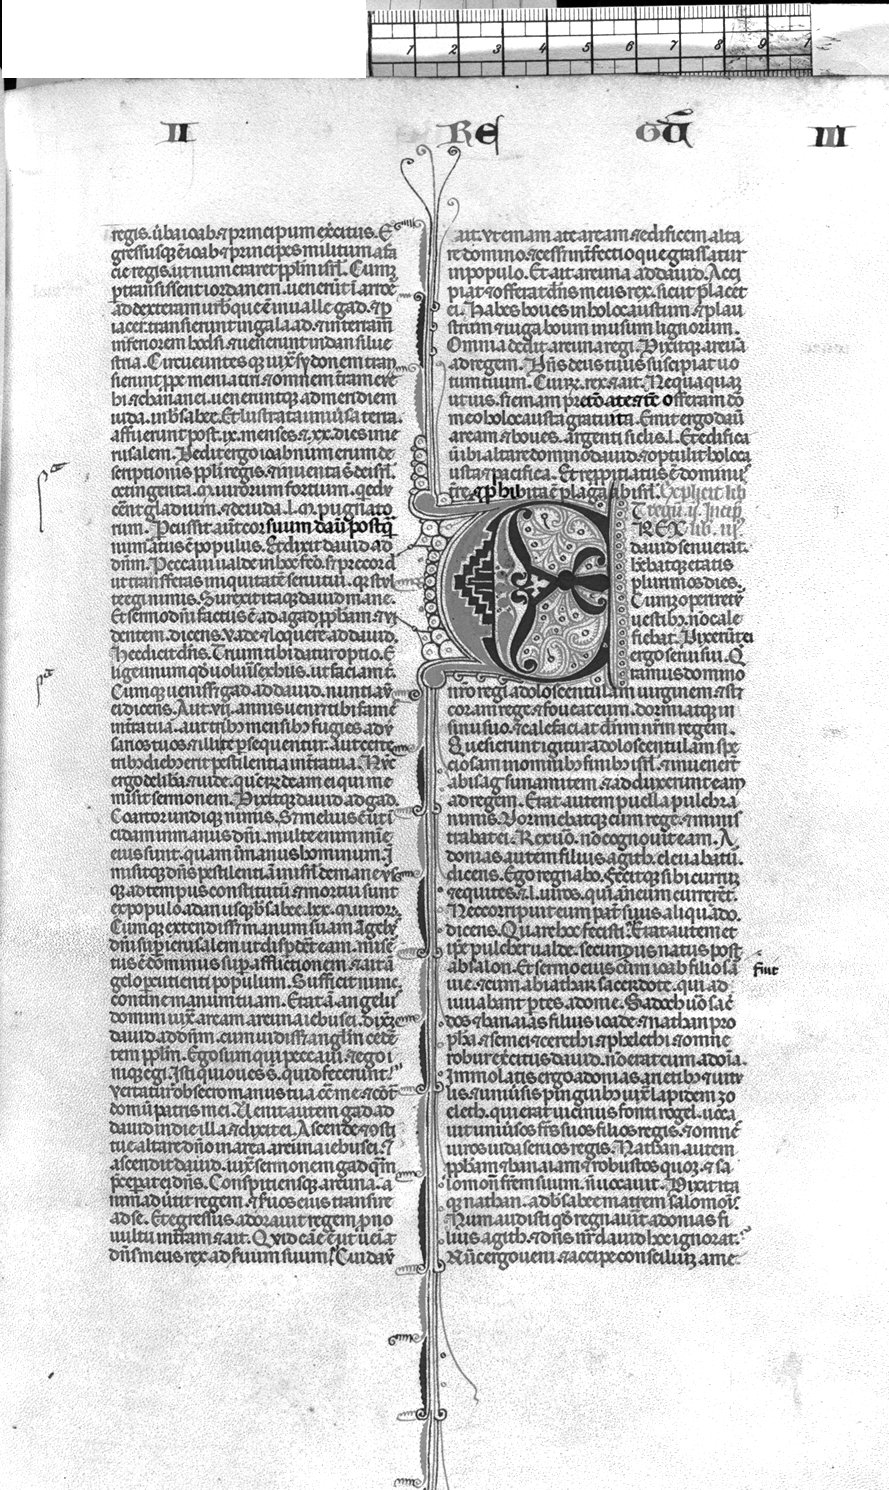 1 2 3 4 5 6 7 8 9 1
II RE GŪ III
regis. ūba ioab ⁊ principum exc̄itus. E
gressusq; ē ioab ⁊ principes militum a fa
cie regis. ut numeraret pp̄lm isrl̄. Cumq;
ptransissent iordanem. uenerūt ī aroer
ad dexteram urb̄ que ē in ualle gad. ⁊ p
iacer. transierunt in galaad. ⁊ in terram
inferiorem hodsi. ⁊ uenerunt in dan silue
stria. Circueuntesq; iuxͣ sydonem tran
sierunt ppe menia tiri. ⁊ omnem t̄ram euei
bi ⁊ chananei. ueneruntq; ad meridiem
iuda. in bsabee. Et lustrata uniūsa terra.
affuerunt post .ix. menses ⁊ .xx. dies in ie
rusalem. Dedit ergo ioab numerum de
scriptionis pp̄li regis. ⁊ inuenta s̄ de isrl̄.
octingenta .m. uirorum fortium. qui edu
cerēnt gladium. ⁊ de iuda .l.m. pugnato
rum. Pcussit aūt cor suum daū postq̄
numatus ē populus. Et dixit dauid ad
dn̄m. Peccaui ualde in hoc fcō. s; precor d
ut transferas iniquitatē serui tui. q; stul
te egi nimis. Surrexit itaq; dauid mane.
Et sermo dn̄i factus ē ad gad pp̄ham ⁊ uī
dentem. dicens. Vade ⁊ loquere ad dauid.
Hec dicit dn̄s. Trium tibi datur optio. E
lige unum qd̄ uolūīs ex his. ut faciam t̄.
Cumq; uenisset gad ad dauid. nuntiauit
ei dicens. Aut .vii. annis ueniet tibi famē
in t̄ra tua. aut trib; mensib; fugies ad̄ū
sarios tuos ⁊ illi te psequentur. aut certe
trib; dieb; erit pestilentia in t̄ra tua. Nūc
ergo delib̄a ⁊ uide. quē r̄ndeam ei qui me
misit sermonem. Dixitq; dauid ad gad.
Coartor undiq; nimis. S; melius ē ut ī
cidam in manus dn̄i. multe enim mīe
eius sunt. quam ī manus hominum. I
misitq; dn̄s pestilentiā in isrl̄ de mane usq;
ad tempus constitutū ⁊ mortui sunt
ex populo a dan usq; b̄sabee .lxx. m. uiror;.
Cumq; extendisset manum suam angelus
dn̄i sup ierusalem ut disperderet eam. misē
tus ē dominus sup afflictionem ⁊ ait an
gelo pcutienti populum. Sufficit nunc.
contine manum tuam. Erat aū angelus
domini iuxͣ aream areuna iebusei. Dixitq;
dauid ad dn̄m. cum uidisset angl̄m ceden
tem pp̄lm. Ego sum qui peccaui. ⁊ ego i
nique egi. Isti qui oues s̄. quid fecerunt?
Vertatur obsecro manus tua cōt̄ me ⁊ cont̄
domū patris mei. Uenit autem gad ad
dauid in die illa ⁊ dixit ei. Ascende ⁊ osti
tue altare dn̄o in area areuna iebusei. ⁊
ascendit dauid. iuxͣ sermonem gad que
p̄cepat ei dn̄s. Conspiciensq; areuna. a
nimaduertit regem. ⁊ s̄uos eius transire
ad se. Et egressus adorauit regem p̄no
uultu in t̄ram ⁊ ait. Quid cāe ē ut ueīat
dn̄s meus rex ad s̄uum suum? Cui dauid
ait. vt emam a te aream ⁊ edificem alta
re domino. ⁊ cesset int̄fectio que grassatur
in populo. Et ait areuna ad dauid. Acci
piat ⁊ offerat dn̄s meus rex. sicut placet
ei. Habes boues in holocaustum. ⁊ plau
strum ⁊ iuga boum in usum lignorum.
Omnia dedit areuna regi. Dixitq; areuā
ad regem. Dn̄s deus tuus suscipiat uo
tum tuum. Cui r̄. rex ⁊ ait. Nequaquā
ut uis. s; emam p̄cio a te ⁊ n̄ offeram dō
meo holocausta gratuita. Emit ergo daū
aream ⁊ boues. argenti siclis .l. Et edifica
uit ibi altare domino dauid. ⁊ optulit holoca
usta ⁊ pacifica. Et repitiatus ē dominus
t̄re. ⁊ p̱hibita ē plaga ab isrl̄. Explicit lib
regū .ii. Incip̄
REX lib. iii
dauid senuerat.
hēbatq; etatis
plurimos dies.
Cumq; operiret̄
uestib;. n̄ cale
fiebat. Dixerunt ei
ergo serui sui. Q
ramus domino
nr̄o regi adolescentulam uirginem. ⁊ stet
coram rege. ⁊ foueat eum. dormiatq; in
sinu suo. ⁊ calefaciat dn̄m nr̄m regem.
Quesierunt igitur adolescentulam spe
ciosam in omnib; finib; isrl̄. ⁊ inuenerūt
abisag sunamitem. ⁊ adduxerunt eam
ad regem. Erat autem puella pulchra
nimis. Dormiebatq; cum rege. ⁊ minis
trabat ei. Rex uō. nō cognouit eam. A
donias autem filius agith. eleuabatur.
dicens. Ego regnabo. Fecitq; sibi currus
⁊ equites. ⁊ .l. uiros. qui an̄ eum currerēt.
Nec corripuit eum pat̄ suus aliquādo.
dicens. Quare hoc fecisti? Erat autem et
ip̄e pulcher ualde. secundus natus post
absalon. Et sermo eius cum ioab filio sar
uie. ⁊ cum abiathar sacerdote. qui ad
iuuabant ptes adonie. Sadoch uō sac̄
dos ⁊ banaias filius ioiade. ⁊ nathan pro
ph̄a. ⁊ semei ⁊ cerethi ⁊ phelethi ⁊ omne
robur exc̄itus dauid. n̄ erat cum adoīa.
Immolatis ergo adonias arietib; ⁊ uitu
lis. ⁊ uniūsis pinguib; iuxͣ lapidem zo
eleth. qui erat uicinus fonti rogel. uoca
uit uniūsos fr̄s suos filios regis. ⁊ omnes
uiros iuda seruos regis. Nathan autem
pp̄ham ⁊ banaiam ⁊ robustos quosq; ⁊ sa
lomon fr̄em suum. n̄ uocauit. Dixit ita
q; nathan. ad b̄sabee matrem salomoīs.
Num audisti qd̄ regnauit adonias fi
lius agith. ⁊ dn̄s nr̄ dauid hoc ignorat?
Nūc ergo ueni. ⁊ accipe consilium a me.
fuit